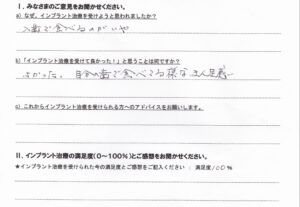 Ⅰ．みなさまのご意見をお聞かせください。
a) なぜ、インプラント治療を受けようと思われましたか？
入歯で食べるのがいや
b)「インプラント治療を受けて良かった！」と思うことは何ですか？
よかった、自分の歯で食べてる様な
c) これからインプラント治療を受けられる方へのアドバイスをお願いします。
Ⅱ．インプラント治療の満足度(0〜100%)とご感想をお聞かせください。
★インプラント治療を受けられた今の満足度とご感想をご記入ください：満足度/００％